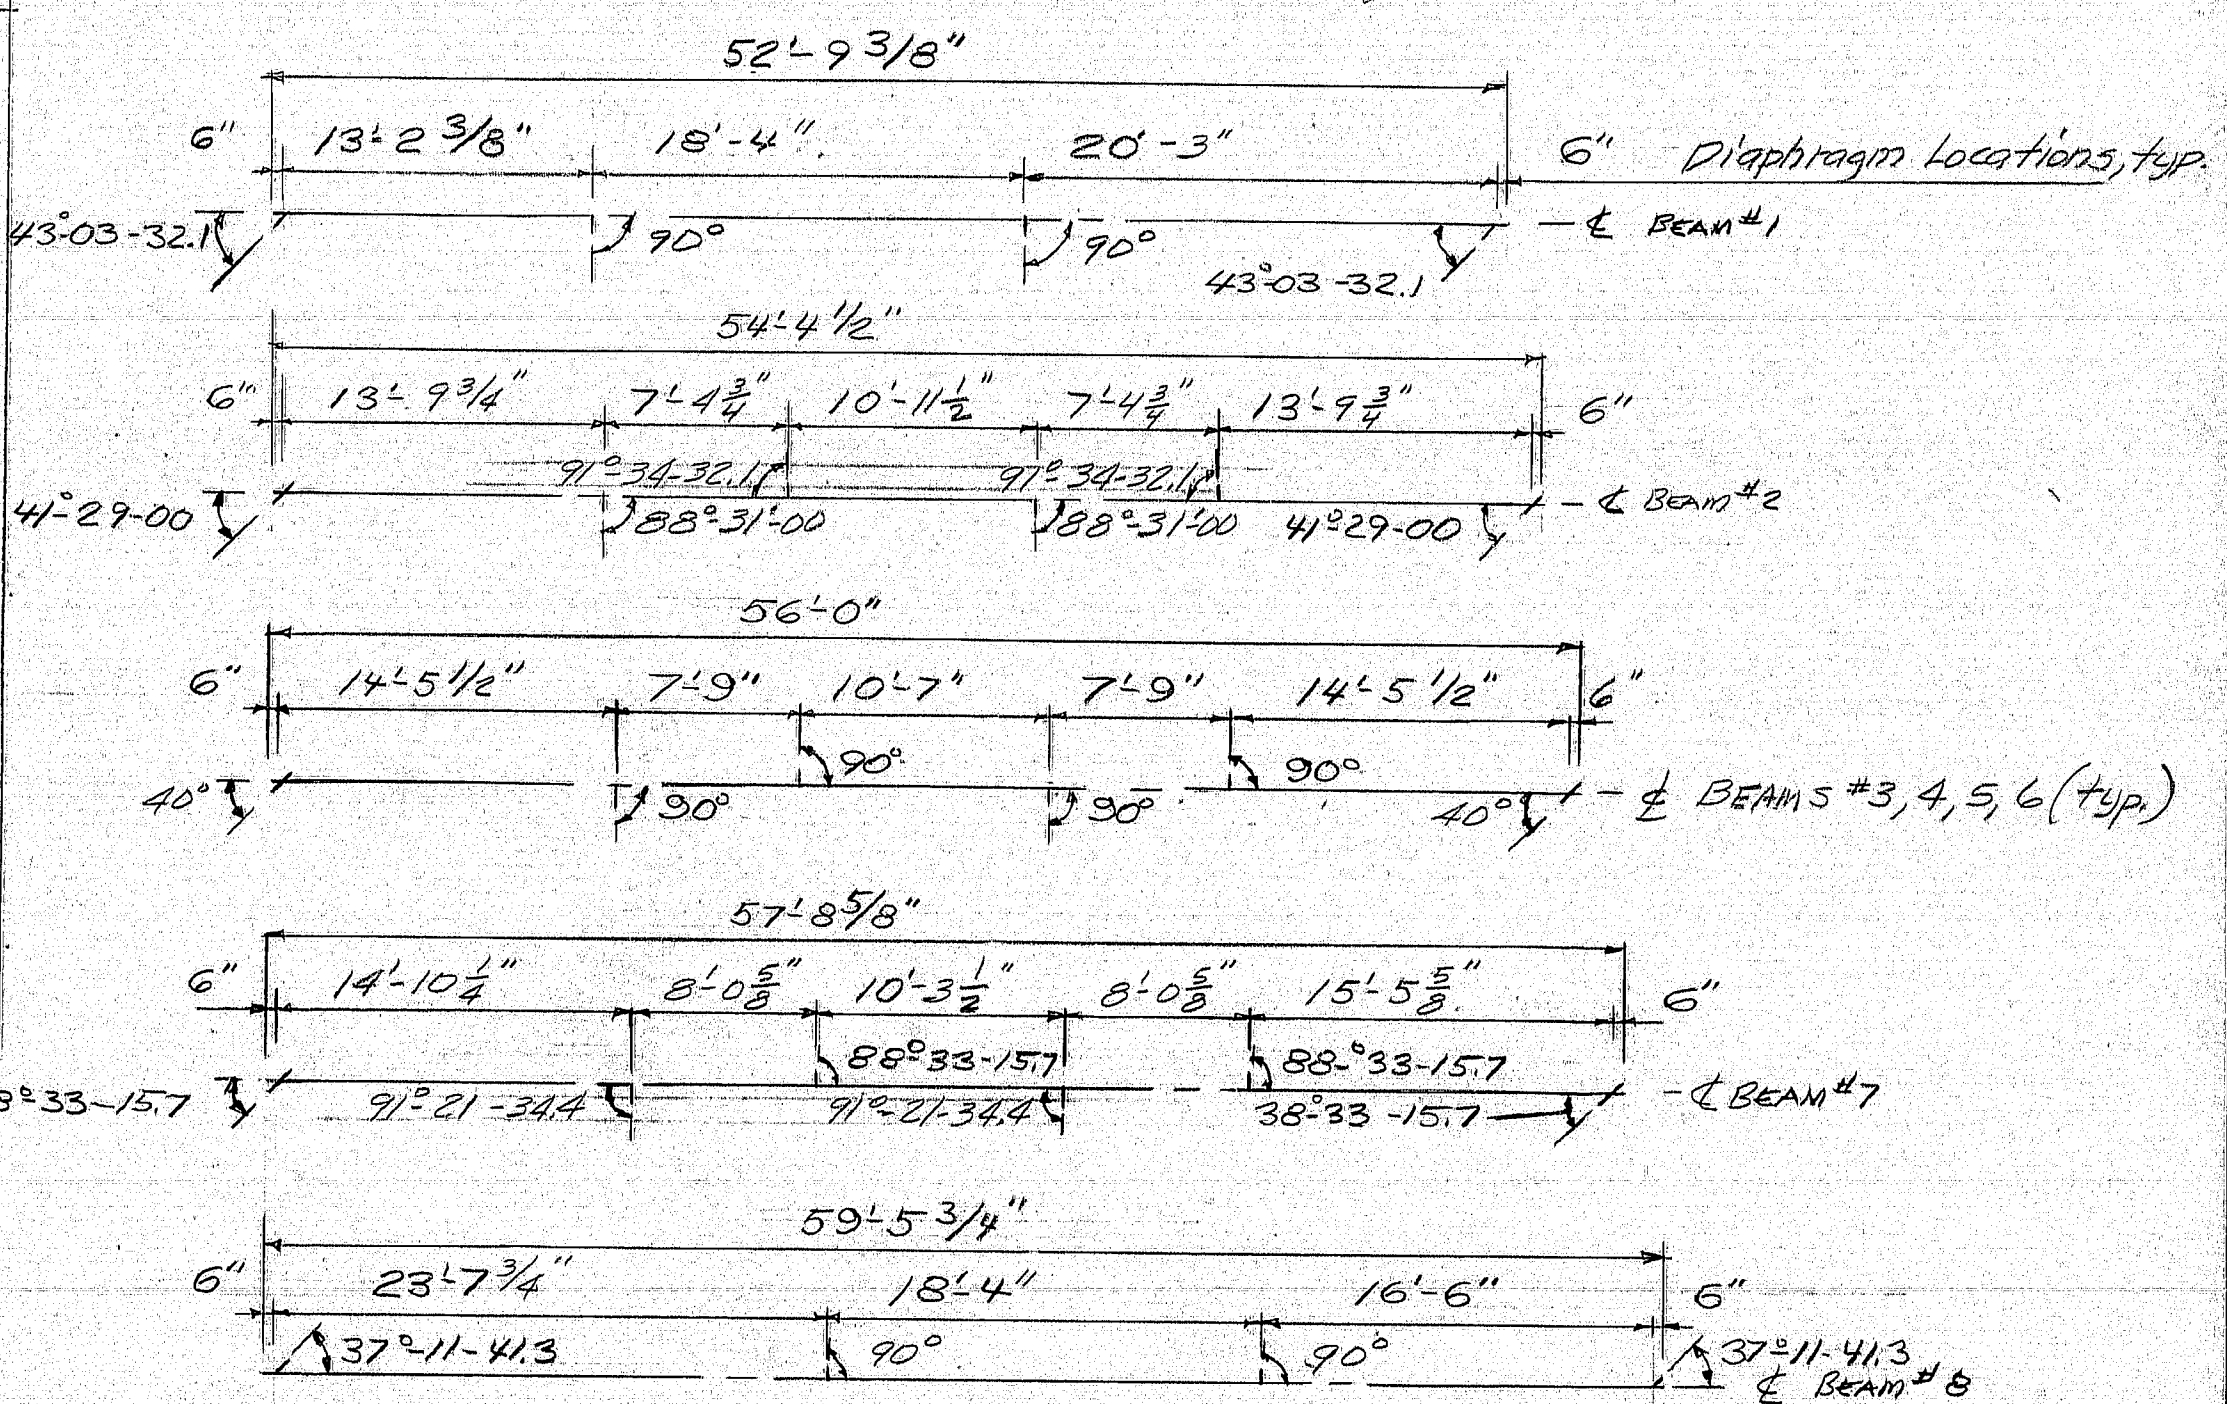 52'-9 3/8"
6" 13'-2 3/8" 18'-4" 20'-3" 6" Diaphragm Locations, typ.
43°-03-32.1 90° 90° 43°-03-32.1 ℄ BEAM #1
54'-4 1/2"
6" 13'-9 3/4" 7'-4 3/4" 10'-11 1/2" 7'-4 3/4" 13'-9 3/4" 6"
91°-34-32.1 91°-34-32.1
41°-29-00 88°-31'-00 88°-31'-00 41°-29-00 ℄ BEAM #2
56'-0"
6" 14'-5 1/2" 7'-9" 10'-7" 7'-9" 14'-5 1/2" 6"
90° 90°
40° 90° 90° 40° ℄ BEAMS #3, 4, 5, 6 (typ.)
57'-8 5/8"
6" 14'-10 1/4" 8'-0 5/8" 10'-3 1/2" 8'-0 5/8" 15'-5 5/8" 6"
88°-33-15.7 88-°33-15.7
8°-33-15.7 91°-21-34.4 91°-21-34.4 38°-33-15.7 ℄ BEAM #7
59'-5 3/4"
6" 23'-7 3/4" 18'-4" 16'-6" 6"
37°-11-41.3 90° 90° 37°-11-41.3
℄ BEAM #8